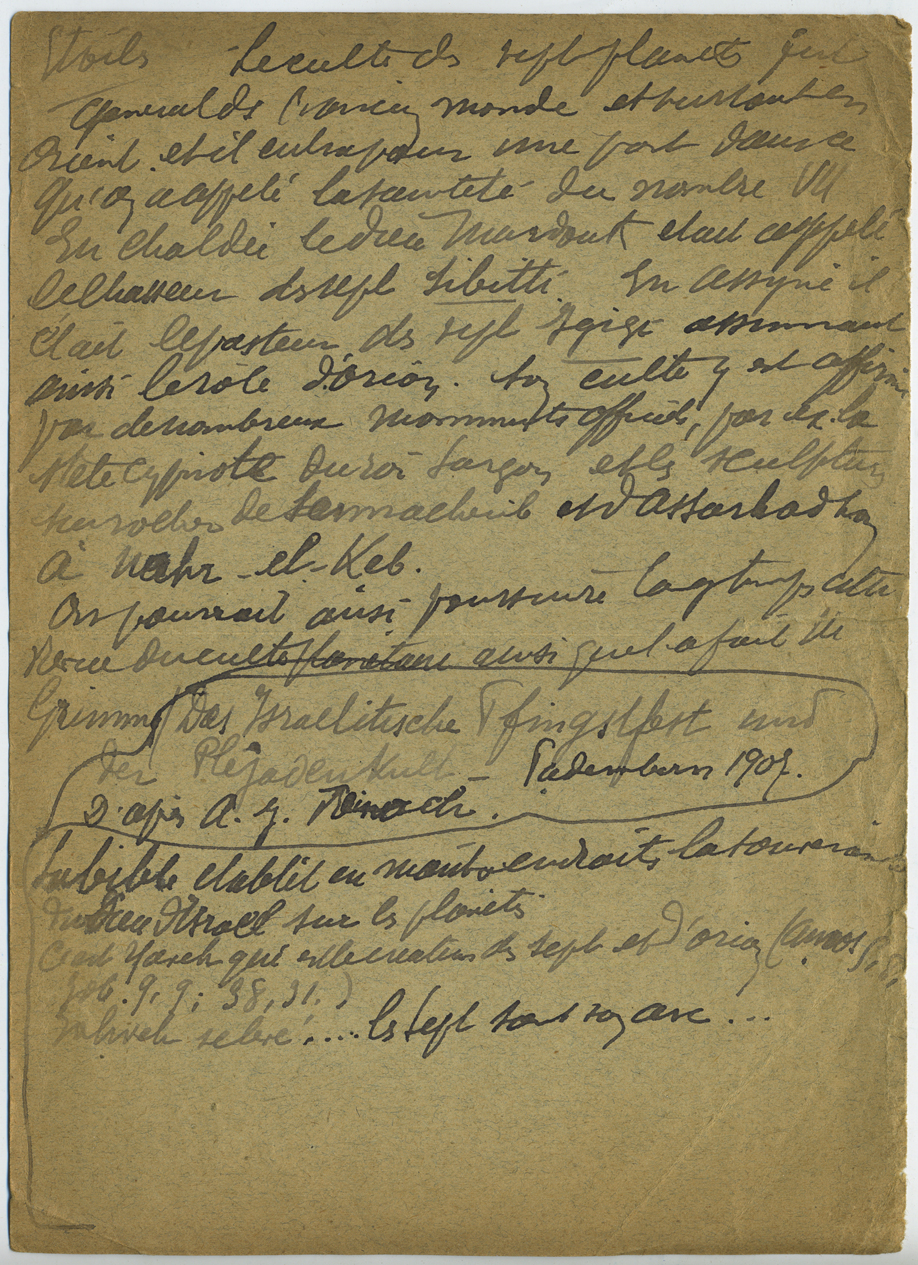 Etoiles Le culte des sept planètes fut
général ds l'ancien monde et surtout en
Orient. et il entra pour une part dans ce
qu'on a appelé la sainteté du nombre VII
En Chaldée le dieu Mardouk etait appelé
le chasseur des sept Sibitti. En Assyrie il
était le pasteur des sept Igigi assumant
ainsi le rôle d'Orion. Son culte y est affirmé
par de nombreux monuments officiels, par ex. la
stele cypriote du roi Sargon et les sculptures
sur rocher de Sennacherib et d'Assarhaddon
à Nahr-el-Keb.
On pourrait ainsi poursuivre longtemps cette
revue du culte planétaire ainsi que l'a fait M
Grimme (Das Israelitische Pfingstfest und
der Plejadenkult – Paderborn 1907.
D'après A. J. Reinach.
La bible etablit en maints endroits la souveraineté
du Dieu d'Israel sur les planètes
C'est Yaveh qui est le createur des sept et d'Orion (Amos 5, 8,
Job. 9, 9; 38, 31.)
Yahveh .... les sept sont son arc ...